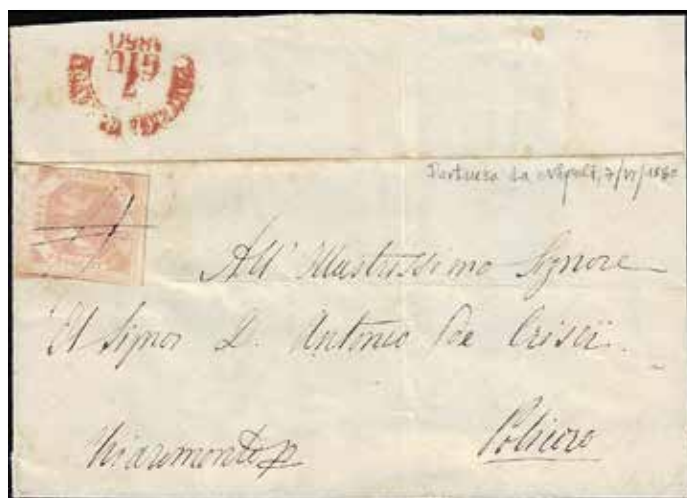 7
GIU
1860
Partenza da Napoli, 7/VI/1860
All' Illustrissimo Signore
Il Signor D. Antonio De Crisci
Chiaromonte p
Policoro